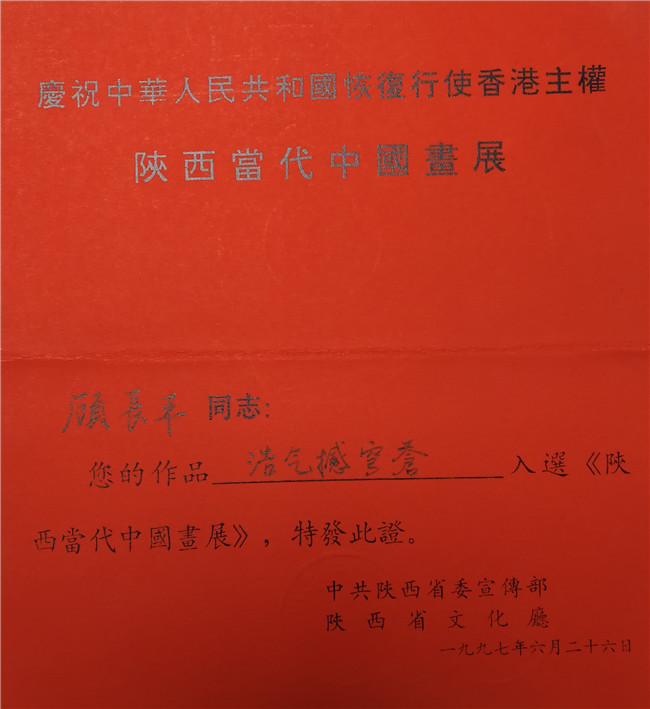 慶祝中華人民共和國恢復行使香港主權
陝西當代中國畫展
顧長平 同志:
您的作品 浩气撼穹蒼 入選《陝
西當代中國畫展》，特發此證。
中共陝西省委宣傳部
陝西省文化廳
一九九七年六月二十六日